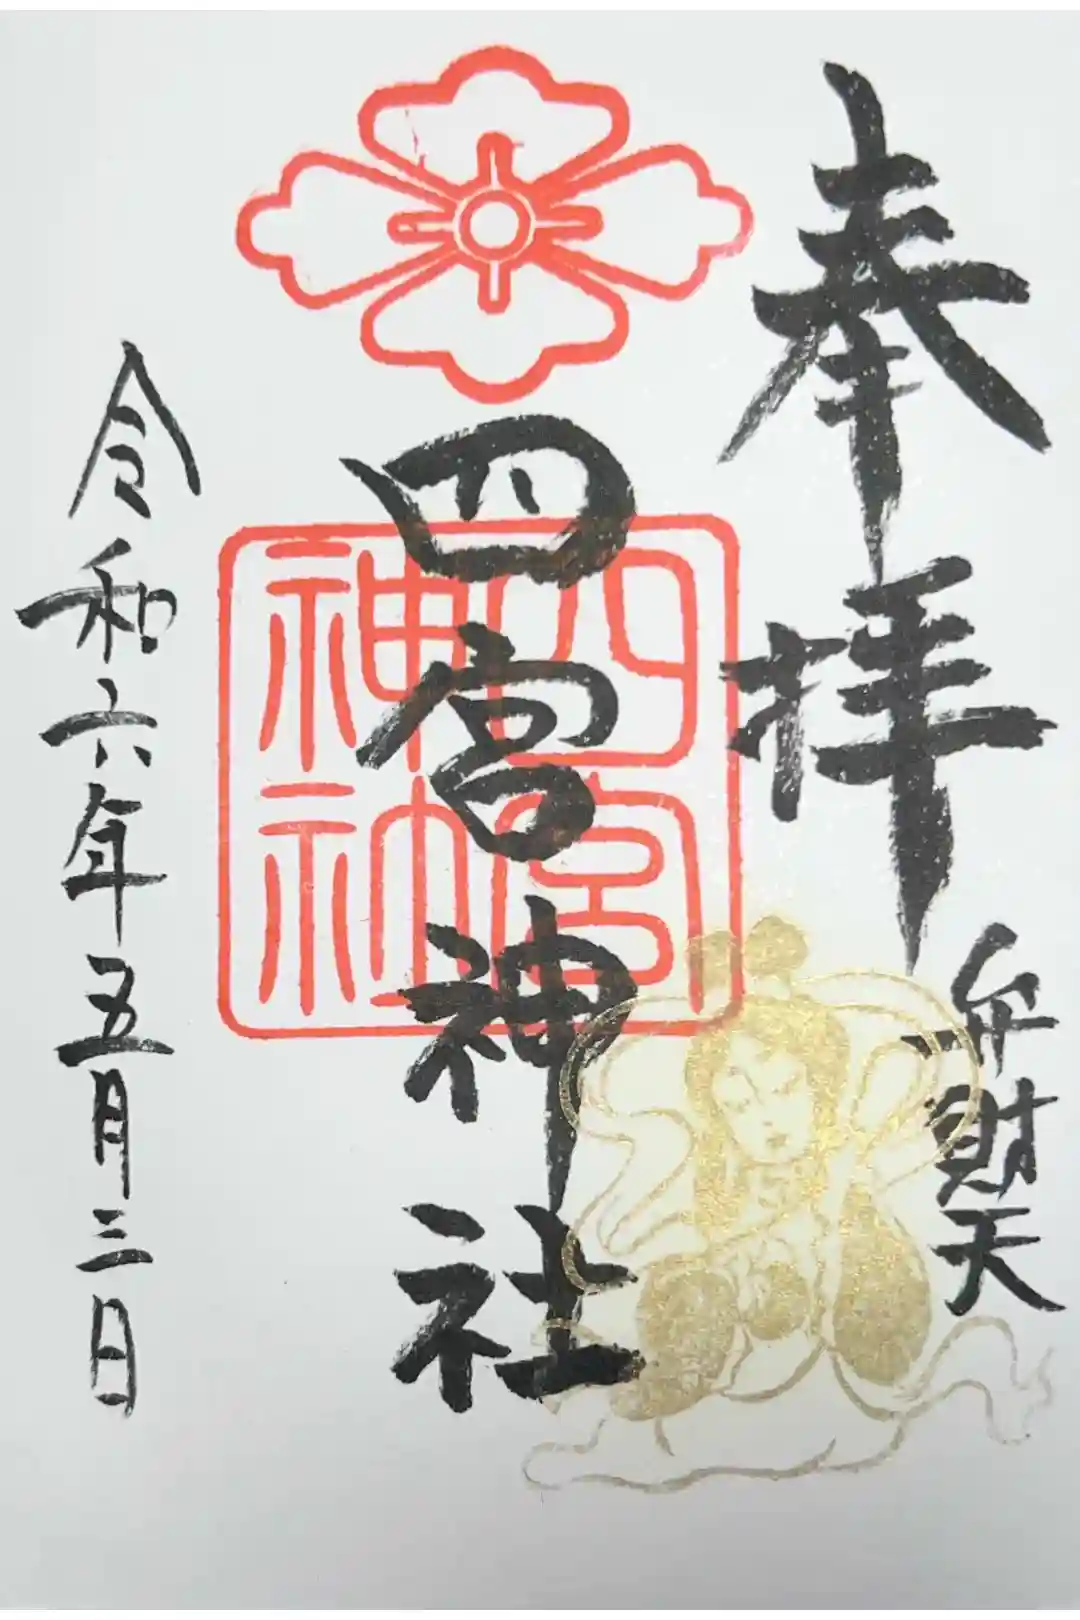 奉拝
弁財天
四宮神社
四宮
神社
令和六年五月三日